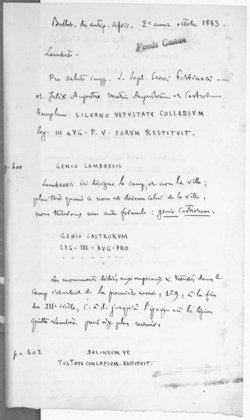 Bullet. des antiq. afric. 2e année octobre 1883.
Fonds Cagnat
Lambèse
Pro salute impp. L. Sept. Severi, Pertinacis
et Juliae Augustae matris Augustorum et Castrorum
templum SILVANO VETUSTATE COLLABSUM
leg. III AUG. P. V. EORUM RESTITUIT.
p. 400 GENIO LAMBAESIS
Lambaesis ici désigne le camp et non la ville;
plus tard quand ce nom est devenu celui de la ville,
nous trouvons une autre formule : genio Castrorum.
GENIO CASTRORUM
LEG · III · AUG · PRO
Les monuments dédiés aux empereurs & trouvés dans le
camp s'étendent de la première année, 129, à la fin
du IIIe siècle, c. à d. jusqu'à l'époque où la légion
quitta Lambèse pour n'y plus revenir.
p. 402 BALINEUM VE
TUSTATE CONLAPSUM · RESTITUIT.